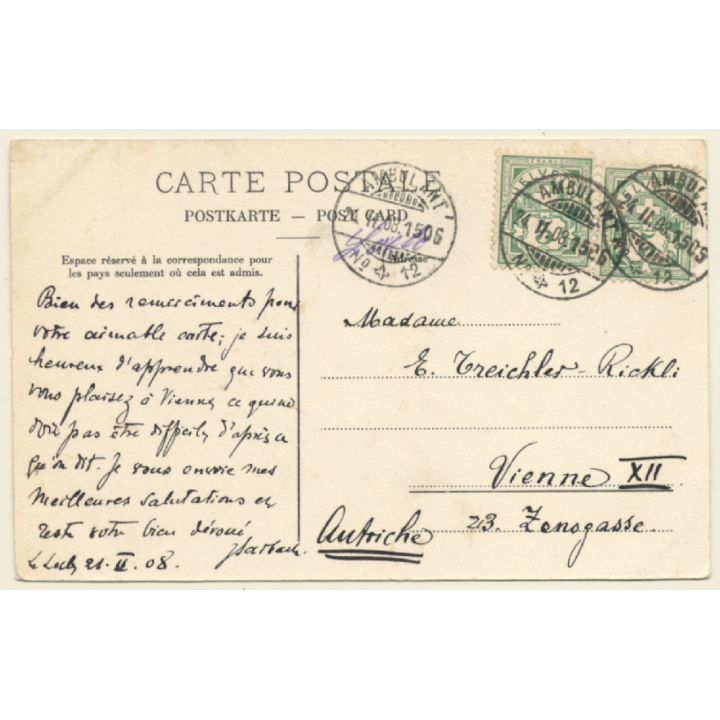 CARTE POSTALE
POSTKARTE — POST CARD
AMBULANT
24.II.08.1506
No 4 12
HELVETIA
FRANCO
AMBULANT
24.II.08.1506
No 4 12
AMBULANT
24.II.08.1506
12
Espace réservé à la correspondance pour
les pays seulement où cela est admis.
Bien des remerciments pour
votre aimable carte; je suis
heureux d'apprendre que vous
vous plaisez à Vienne, ce qui ne
doit pas être difficile, d'après ce
qu'on dit. Je vous envoie mes
meilleures salutations et
reste votre bien dévoué
21. II. 08.
Madame
E. Treichler-Rickli
Vienne XII
23. Zenogasse.
Autriche